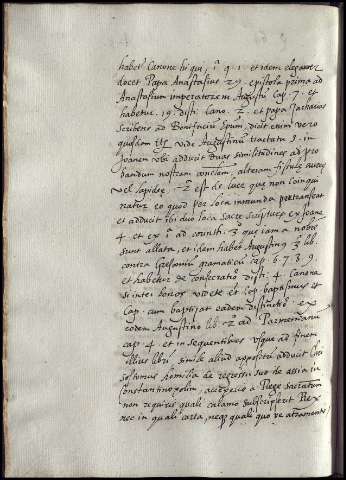 habet Canone hi qui, i q. 1. et idem eleganter
docet Papa Anastasius 2us epistola prima ad
Anastasium imperatorem Augustu Cap. 7. et
habetur 19 dist. Cano. 2. et papa
scribens ad Bonifacium Epum, dicit enim vero
quosdam vide Augustinu tractatu 5. in
Joanem ubi adducit duas similitudines ad pro
bandum nostram conclam, alteram fistule
vel lapidee. 2a est de luce que non coinqui
natur eo quod per loca inmunda pertranseat
et adducit ibi duo loca sacre scripture ex Joane
4 et ex i ad corinth. 3 que iam a nobis
sunt allata, et idem habet Augustinus 3 lib.
contra Cresconiu gramaticu cap. 6. 7. 8. 9.
et habetur de consecratio dist. 4. Canone
si inter bonos videte et Cap. baptismus et
Cap. cum baptizat eadem distinctio ex
eodem Augustino lib. 2o ad Parmenianu
cap. 4 et in sequentibus usque ad finem
illius libri simile aliud appositu adducit Chri
sostomus homilia de regressu suo de assia in
Constantinopolim, accepto a Rege
non requiris quali calamo subscripserit Rex
nec in quali carta, neque quali quo ve atramento